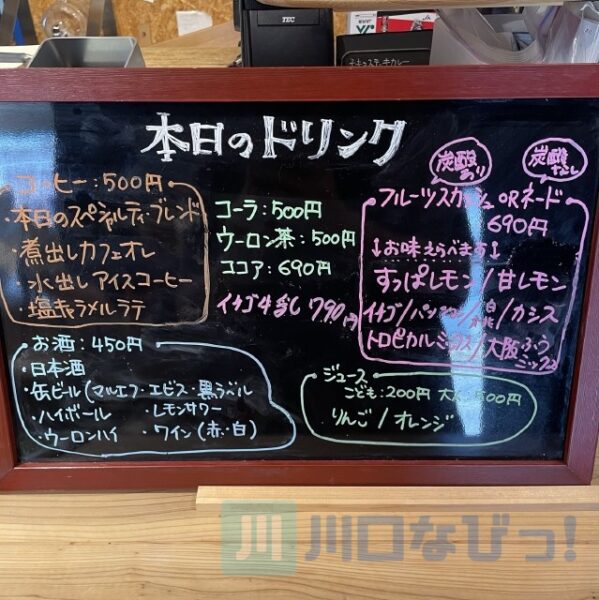 TEC
本日のドリンク
コーヒー：500円
・本日のスペシャルティ・ブレンド
・煮出しカフェオレ
・水出しアイスコーヒー
・塩キャラメルラテ
コーラ：500円
ウーロン茶：500円
ココア：690円
イチゴ牛乳 790円
炭酸あり
炭酸なし
フルーツスカッシュ OR ネード
690円
↓お味えらべます↓
すっぱレモン/甘レモン
イチゴ/パッション/白桃/カシス
トロピカルミックス/大阪ふうミックス
お酒：450円
・日本酒
・缶ビール(マルエフ・エビス・黒ラベル
・ハイボール ・レモンサワー
・ウーロンハイ ・ワイン(赤・白)
ジュース
こども：200円 大人：500円
りんご/オレンジ
川 川口なびっ！